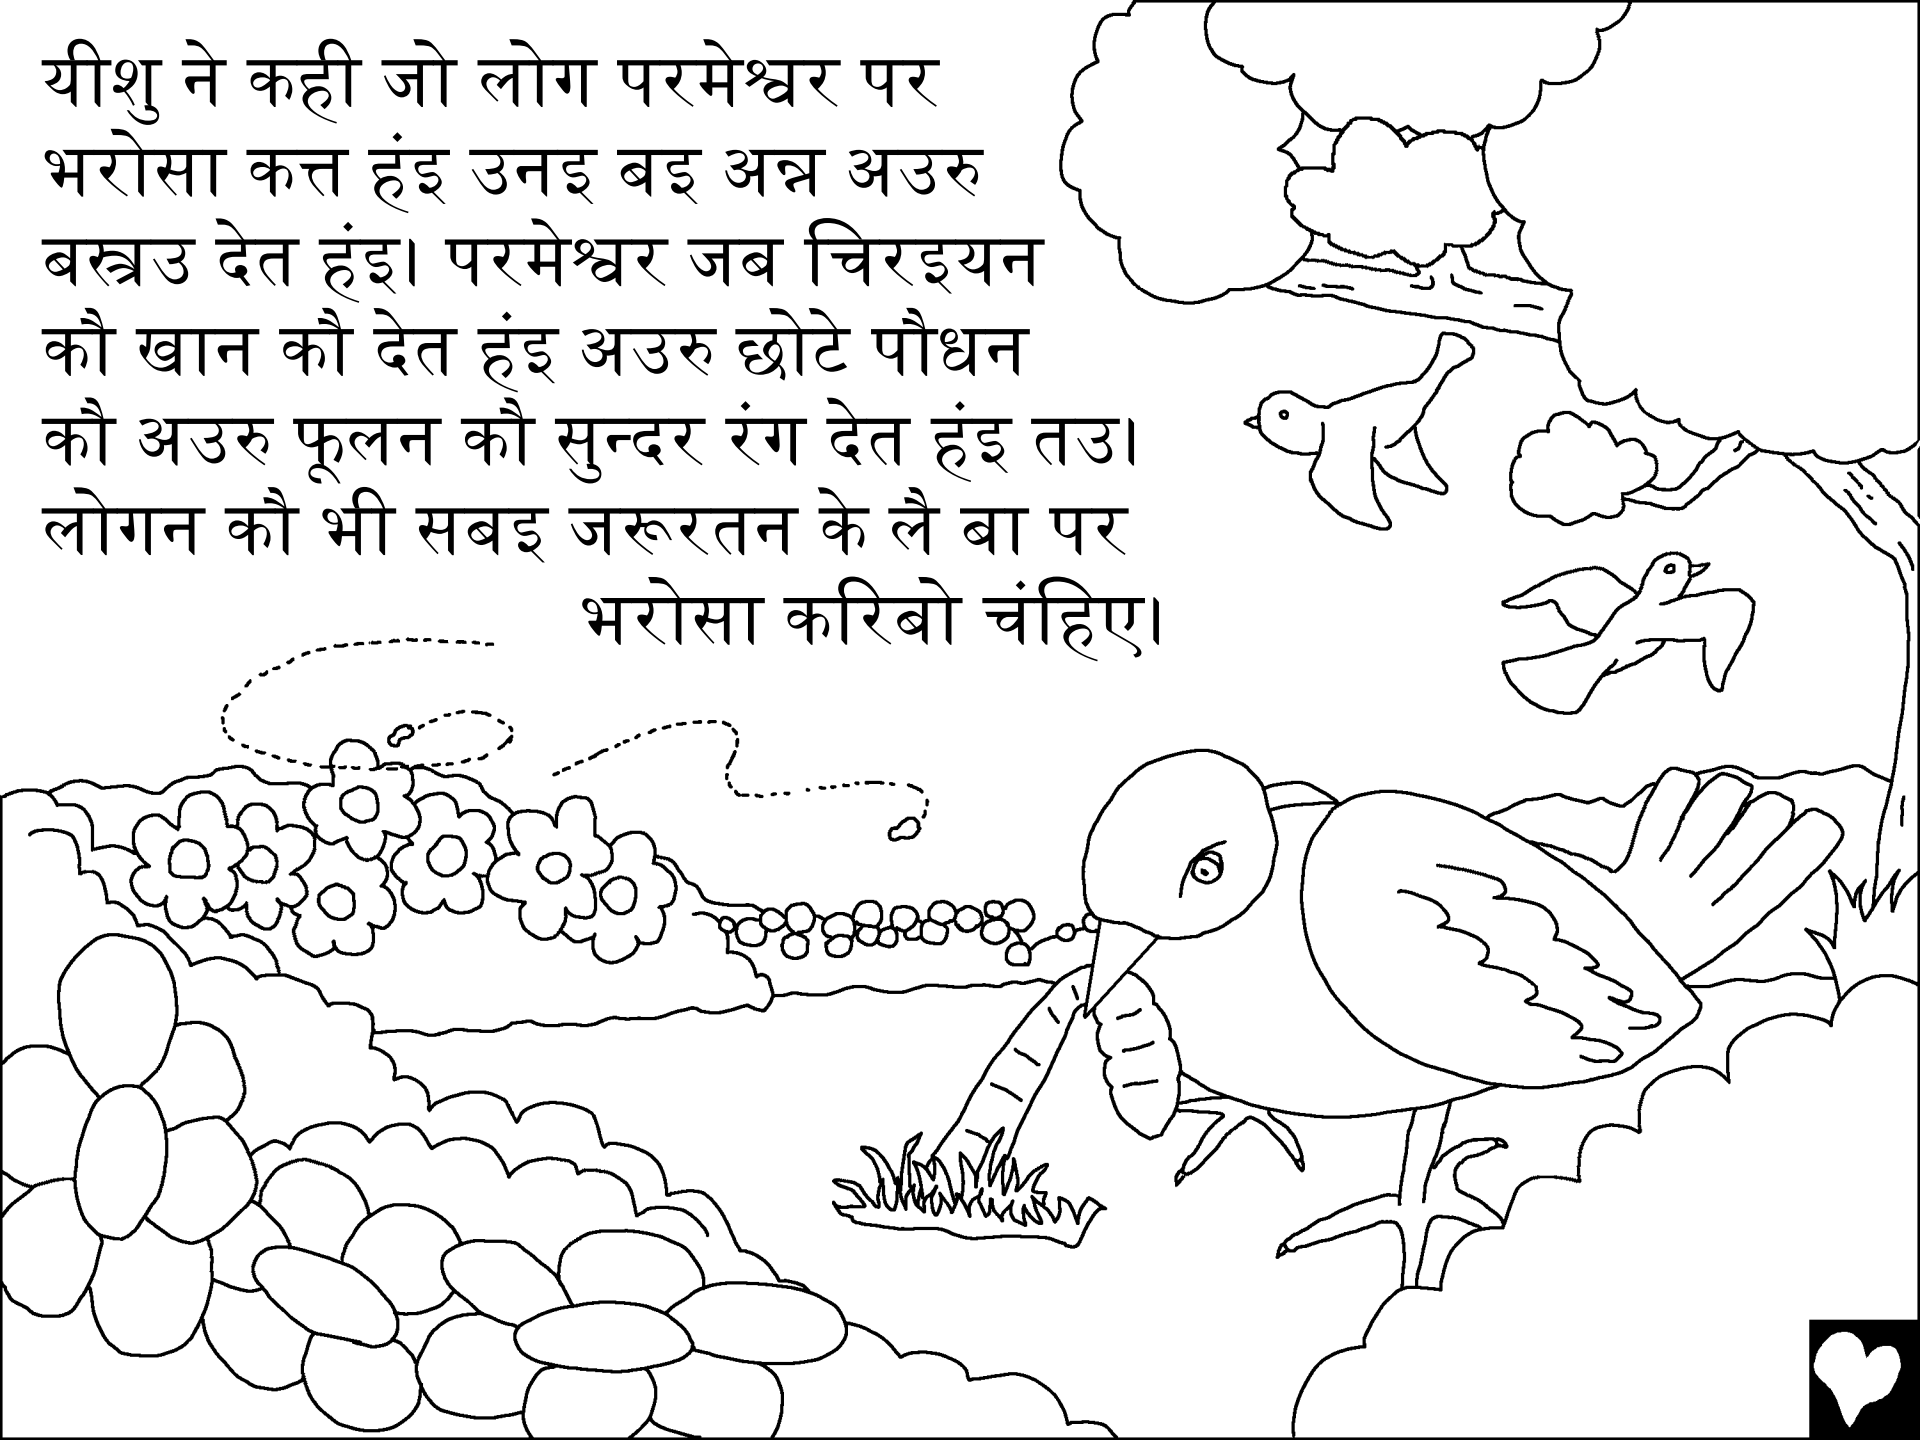 यीशु ने कही जो लोग परमेश्वर पर
भरोसा कत्त हंइ उनइ बइ अन्न अउरु
बस्त्रउ देत हंइ। परमेश्वर जब चिरइयन
कौ खान कौ देत हंइ अउरु छोटे पौधन
कौ अउरु फूलन कौ सुन्दर रंग देत हंइ तउ।
लोगन कौ भी सबइ जरूरतन के लै बा पर
भरोसा करिबो चंहिए।